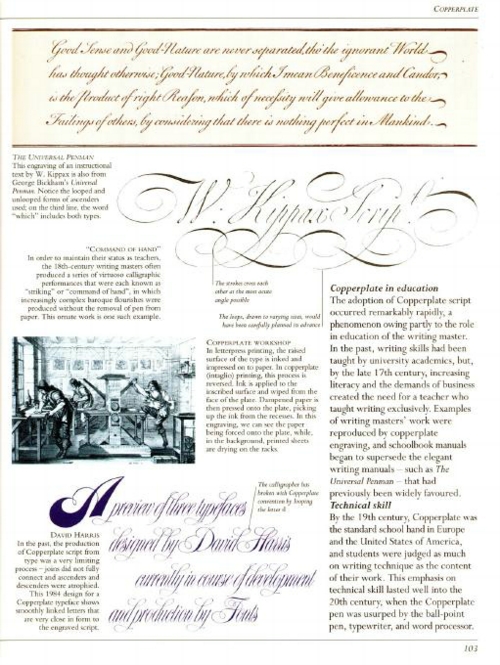 COPPERPLATE
Good Sense and Good-Nature are never separated, tho' the ignorant World
has thought otherwise; Good-Nature, by which I mean Beneficence and Candor,
is the Product of right Reason, which of necessity will give allowance to the
Failings of others, by considering that there is nothing perfect in Mankind.
THE UNIVERSAL PENMAN
This engraving of an instructional
text by W. Kippax is also from
George Bickham's Universal
Penman. Notice the looped and
unlooped forms of ascenders
used; on the third line, the word
"which" includes both types.
W. Kippax Scrip.
"COMMAND OF HAND"
In order to maintain their status as teachers,
the 18th-century writing masters often
produced a series of virtuoso calligraphic
performances that were each known as
"striking" or "command of hand", in which
increasingly complex baroque flourishes were
produced without the removal of pen from
paper. This ornate work is one such example.
The strokes cross each
other at the most acute
angle possible
The loops, drawn to varying sizes, would
have been carefully planned in advance
COPPERPLATE WORKSHOP
In letterpress printing, the raised
surface of the type is inked and
impressed on to paper. In copperplate
(intaglio) printing, this process is
reversed. Ink is applied to the
inscribed surface and wiped from the
face of the plate. Dampened paper is
then pressed onto the plate, picking
up the ink from the recesses. In this
engraving, we can see the paper
being forced onto the plate, while,
in the background, printed sheets
are drying on the racks.
Copperplate in education
The adoption of Copperplate script
occurred remarkably rapidly, a
phenomenon owing partly to the role
in education of the writing master.
In the past, writing skills had been
taught by university academics, but,
by the late 17th century, increasing
literacy and the demands of business
created the need for a teacher who
taught writing exclusively. Examples
of writing masters' work were
reproduced by copperplate
engraving, and schoolbook manuals
began to supersede the elegant
writing manuals – such as The
Universal Penman – that had
previously been widely favoured.
Technical skill
By the 19th century, Copperplate was
the standard school hand in Europe
and the United States of America,
and students were judged as much
on writing technique as the content
of their work. This emphasis on
technical skill lasted well into the
20th century, when the Copperplate
pen was usurped by the ball-point
pen, typewriter, and word processor.
The calligrapher has
broken with Copperplate
convention by looping
the letter d
A preview of three typefaces
designed by David Harris
currently in course of development
and production by Fonts
DAVID HARRIS
In the past, the production
of Copperplate script from
type was a very limiting
process – joins did not fully
connect and ascenders and
descenders were atrophied.
This 1984 design for a
Copperplate typeface shows
smoothly linked letters that
are very close in form to
the engraved script.
103